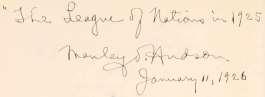 "The League of Nations in 1925
Manley O. Hudson
January 11, 1926